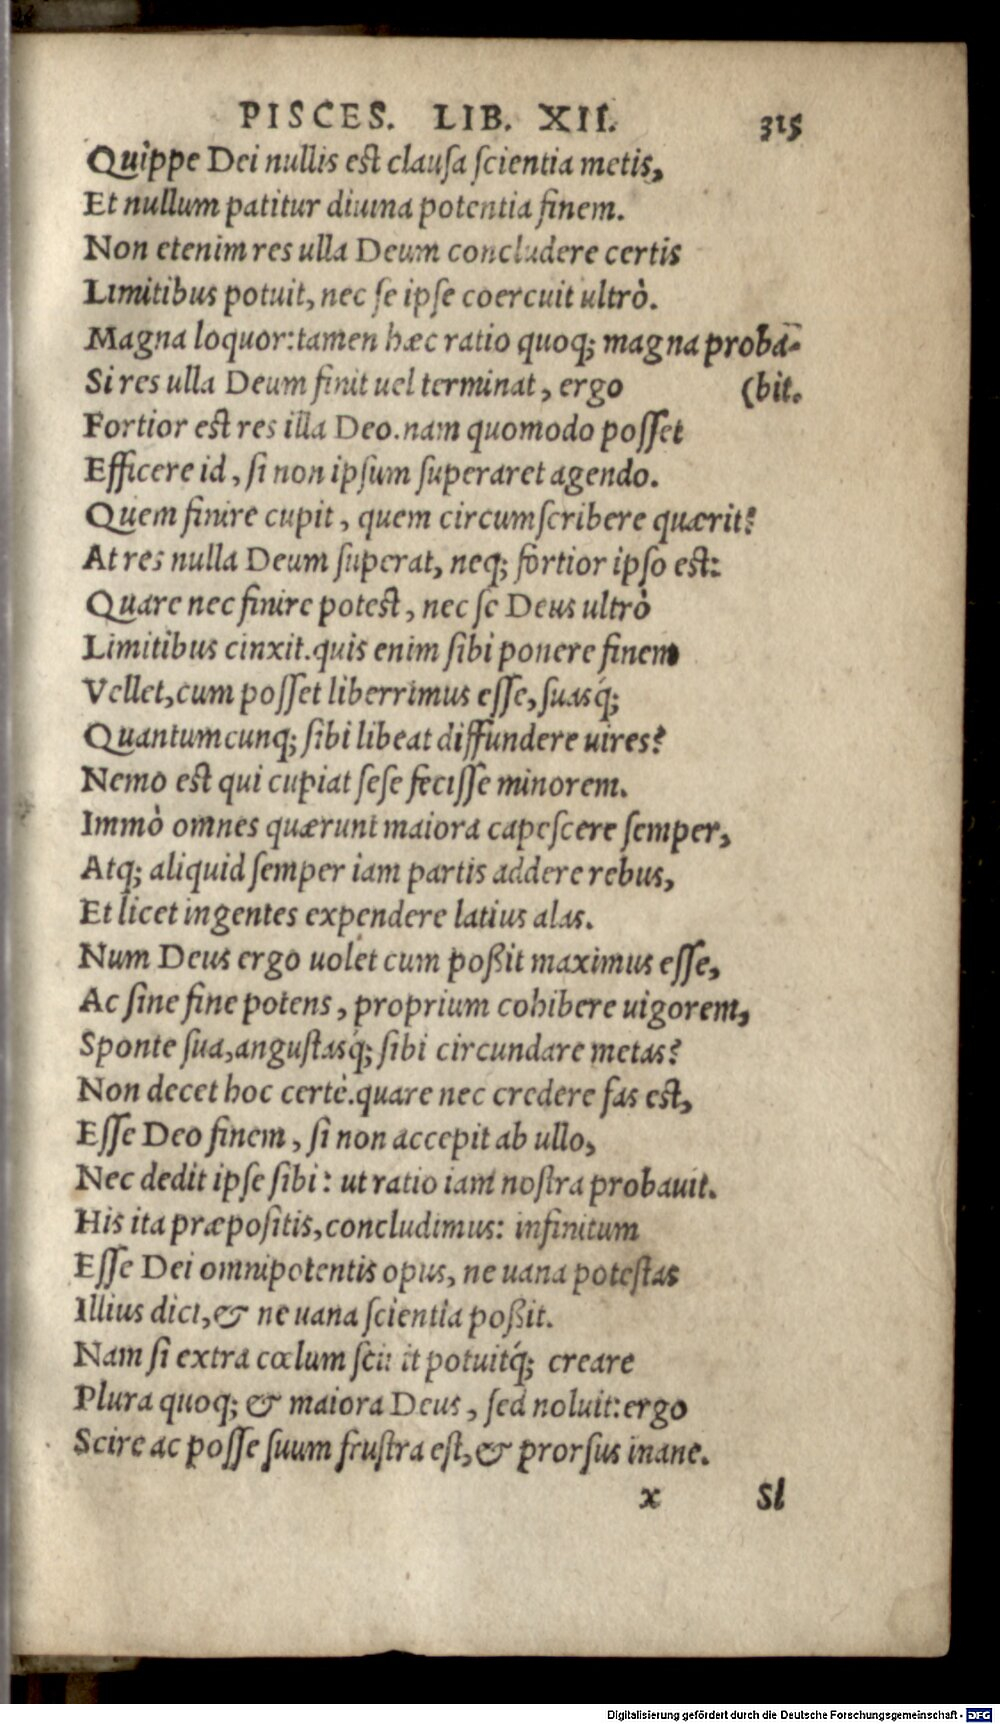 PISCES. LIB. XII. 315
Quippe Dei nullis est clausa scientia metis,
Et nullum patitur diuina potentia finem.
Non etenim res ulla Deum concludere certis
Limitibus potuit, nec se ipse coercuit ultrò.
Magna loquor: tamen hæc ratio quoq; magna probā-
Si res ulla Deum finit uel terminat, ergo (bit.
Fortior est res illa Deo. nam quomodo posset
Efficere id, si non ipsum superaret agendo.
Quem finire cupit, quem circumscribere quærit?
At res nulla Deum superat, neq; fortior ipso est:
Quare nec finire potest, nec se Deus ultrò
Limitibus cinxit. quis enim sibi ponere finem
Vellet, cum posset liberrimus esse, suasq́;
Quantumcunq; sibi libeat diffundere uires?
Nemo est qui cupiat sese fecisse minorem.
Immò omnes quærunt maiora capescere semper,
Atq; aliquid semper iam partis addere rebus,
Et licet ingentes expendere latius alas.
Num Deus ergo uolet cum poßit maximus esse,
Ac sine fine potens, proprium cohibere uigorem,
Sponte sua, angustasq́; sibi circundare metas?
Non decet hoc certè. quare nec credere fas est,
Esse Deo finem, si non accepit ab ullo,
Nec dedit ipse sibi: ut ratio iam nostra probauit.
His ita præpositis, concludimus: infinitum
Esse Dei omnipotentis opus, ne uana potestas
Illius dici, & ne uana scientia poßit.
Nam si extra cœlum sciuit potuitq́; creare
Plura quoq; & maiora Deus, sed noluit: ergo
Scire ac posse suum frustra est, & prorsus inane.
x Si
Digitalisierung gefördert durch die Deutsche Forschungsgemeinschaft - DFG